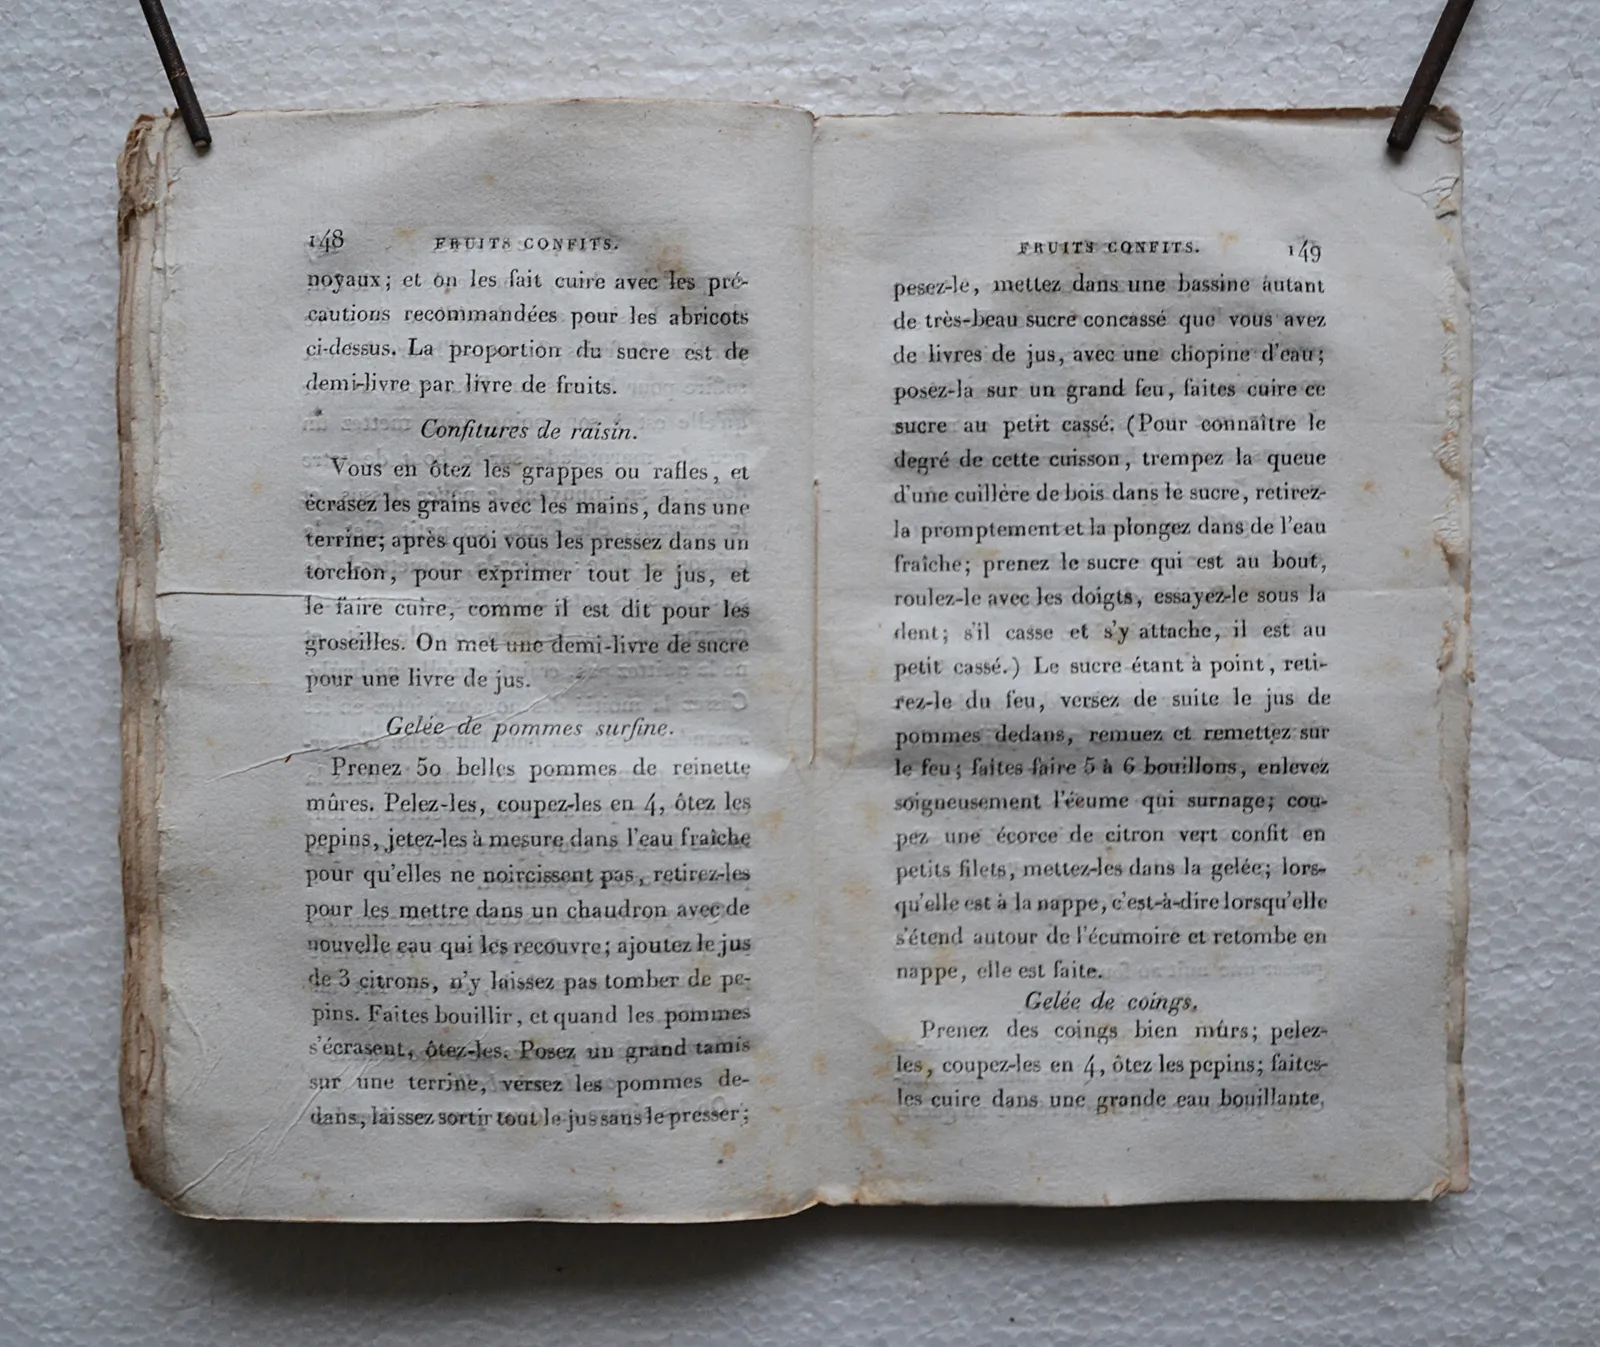 148 FRUITS CONFITS.
noyaux; et on les fait cuire avec les pré-
cautions recommandées pour les abricots
ci-dessus. La proportion du sucre est de
demi-livre par livre de fruits.
Confitures de raisin.
Vous en ôtez les grappes ou rafles, et
écrasez les grains avec les mains, dans une
terrine; après quoi vous les pressez dans un
torchon, pour exprimer tout le jus, et
le faire cuire, comme il est dit pour les
groseilles. On met une demi-livre de sucre
pour une livre de jus.
Gelée de pommes surfine.
Prenez 50 belles pommes de reinette
mûres. Pelez-les, coupez-les en 4, ôtez les
pepins, jetez-les à mesure dans l'eau fraîche
pour qu'elles ne noircissent pas, retirez-les
pour les mettre dans un chaudron avec de
nouvelle eau qui les recouvre; ajoutez le jus
de 3 citrons, n'y laissez pas tomber de pe-
pins. Faites bouillir, et quand les pommes
s'écrasent, ôtez-les. Posez un grand tamis
sur une terrine, versez les pommes de-
dans, laissez sortir tout le jus sans le presser;
FRUITS CONFITS. 149
pesez-le, mettez dans une bassine autant
de très-beau sucre concassé que vous avez
de livres de jus, avec une chopine d'eau;
posez-la sur un grand feu, faites cuire ce
sucre au petit cassé. (Pour connaître le
degré de cette cuisson, trempez la queue
d'une cuillère de bois dans le sucre, retirez-
la promptement et la plongez dans de l'eau
fraîche; prenez le sucre qui est au bout,
roulez-le avec les doigts, essayez-le sous la
dent; s'il casse et s'y attache, il est au
petit cassé.) Le sucre étant à point, reti-
rez-le du feu, versez de suite le jus de
pommes dedans, remuez et remettez sur
le feu; faites faire 5 à 6 bouillons, enlevez
soigneusement l'écume qui surnage; cou-
pez une écorce de citron vert confit en
petits filets, mettez-les dans la gelée; lors-
qu'elle est à la nappe, c'est-à-dire lorsqu'elle
s'étend autour de l'écumoire et retombe en
nappe, elle est faite.
Gelée de coings.
Prenez des coings bien mûrs; pelez-
les, coupez-les en 4, ôtez les pepins; faites-
les cuire dans une grande eau bouillante,